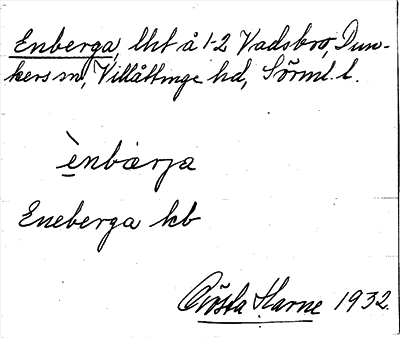 Enberga, lht å 1-2 Vadsbro, Dun-
kers sn, Villåttinge hd, Sörml. l.
è̱nbàrja
Eneberga kb
Gösta Harne 1932.